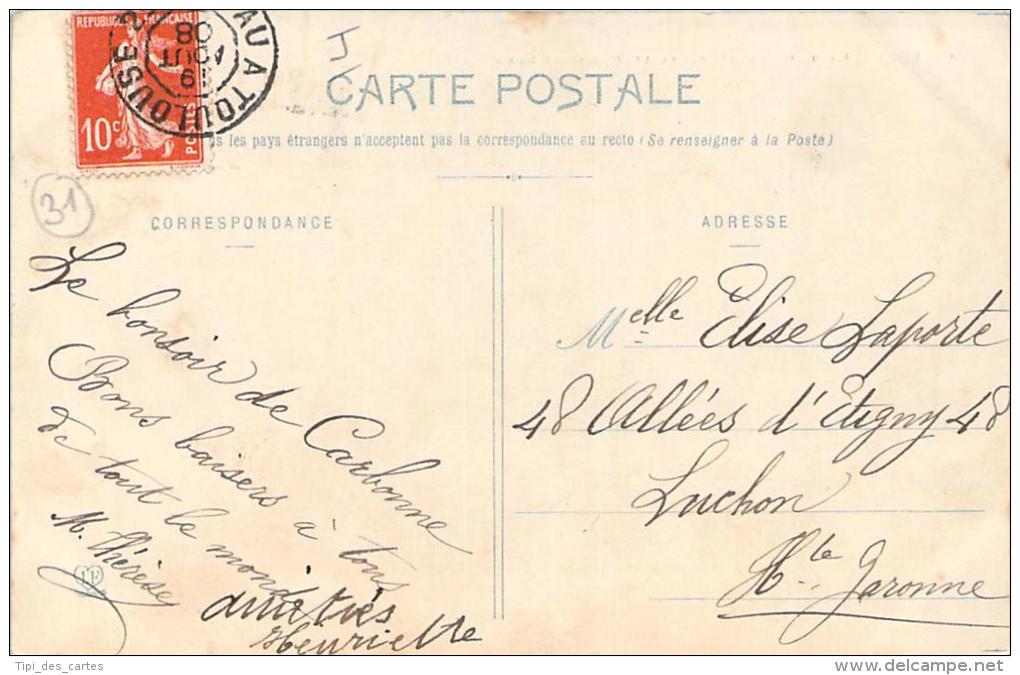 RÉPUBLIQUE FRANÇAISE
10c
POSTES
AU A TOULOUSE
19
AOUT
08
CARTE POSTALE
s les pays étrangers n'acceptent pas la correspondance au recto (Se renseigner à la Poste)
31
CORRESPONDANCE
Le bonsoir de Carbonne
Bons baisers à tous
de tout le monde
M. Thérèse
amitiés
Henriette
ADRESSE
Melle Elise Laporte
48 Allées d'Etigny 48
Luchon
Hte Garonne
Tipi_des_cartes
www.delcampe.net